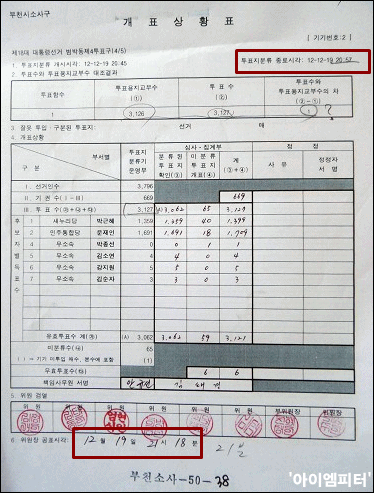 부천시소사구
개 표 상 황 표
[ 기기번호: 2 ]
제18대 대통령선거 범박동제4투표구(4/5)
1. 투표지분류 개시시각: 12-12-19 20:45
투표지분류 종료시각: 12-12-19 20:57
2. 투표수와 투표용지교부수 대조결과
투표함수 투표용지교부수(①) 투 표 수(②) 투표수와 투표용지교부수의 차(②-①)
1 3,126 3,127 1 ?
3. 잘못 투입·구분된 투표지: 선거 매
4. 개표상황
구 분 부서별 투표지분류기운영부 심사·집계부 정 정
분류된 투표지 확인(③) 미분류 투표지 개표(④) 계(③+④) 사 유 정정자 서 명
Ⅰ. 선거인수 3,796
Ⅱ 기 권 수 (Ⅰ-Ⅲ) 669 669
Ⅲ 투 표 수 3,127 3,062 65 3,127
후보자별득표수
1 새누리당 박근혜 1,359 1,359 40 1,399
2 민주통합당 문재인 1,691 1,691 18 1,709
4 무소속 박종선 0 0 1 1
5 무소속 김소연 4 4 0 4
6 무소속 강지원 5 5 0 5
7 무소속 김순자 3 3 0 3
유효투표수 계(㉮) (A) 3,062 3,062 59 3,121
미분류수(㉯) 65
( ) = 기기 미투입 매수, 분수에 포함 (1)
무효투표수(㉰) 6 6
책임사무원 서명
5. 위원 검열
위 원 위 원 위 원 위 원 위 원 위 원 부위원장 위원장
6. 위원장 공표시각: 12 월 19 일 21 시 18 분 21분
부천소사-50-38
'아이엠피터'